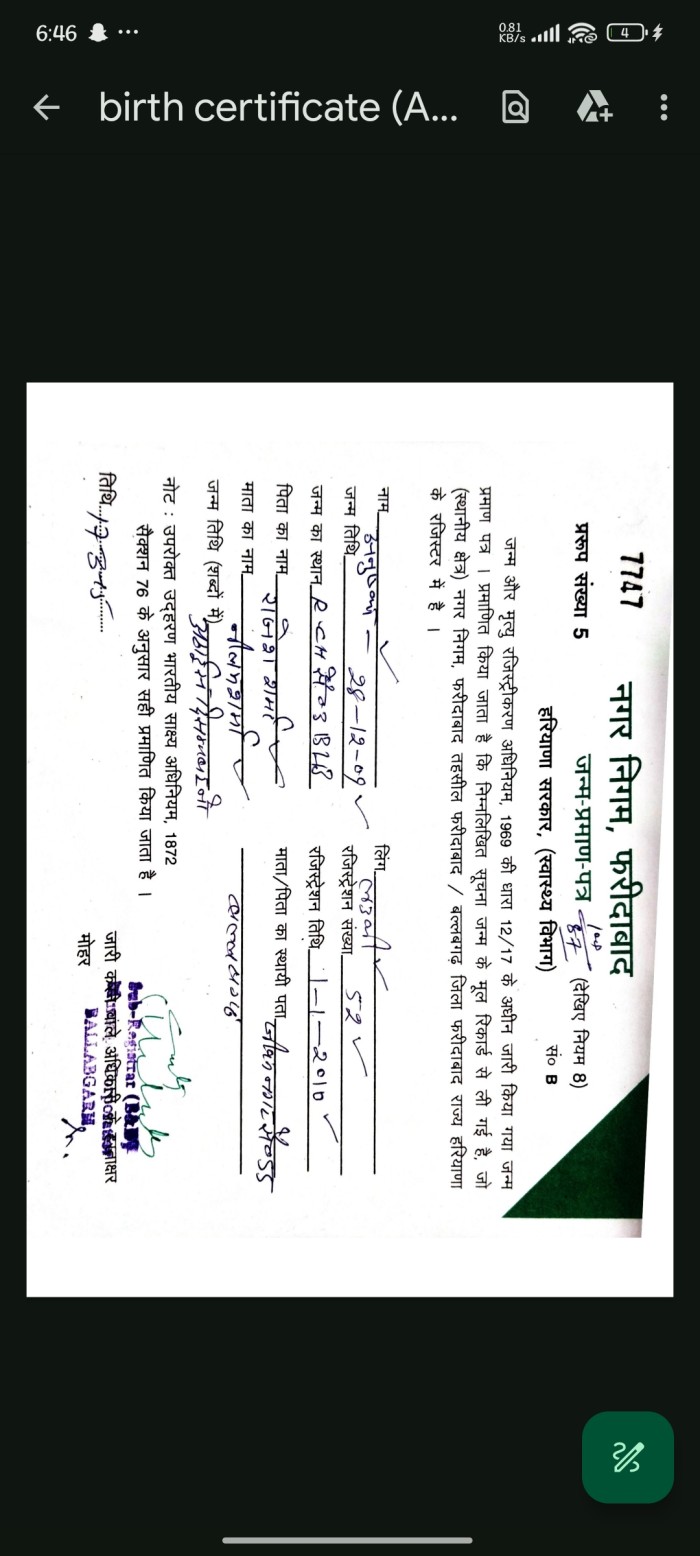 6:46
0.81 KB/s
4
birth certificate (A...
7747
नगर निगम, फरीदाबाद
प्ररूप संख्या 5
जन्म-प्रमाण-पत्र
(देखिए नियम 8)
हरियाणा सरकार, (स्वास्थ्य विभाग)
सं० B
जन्म और मृत्यु रजिस्ट्रीकरण अधिनियम, 1969 की धारा 12/17 के अधीन जारी किया गया जन्म
प्रमाण पत्र । प्रमाणित किया जाता है कि निम्नलिखित सूचना जन्म के मूल रिकार्ड से ली गई है, जो
(स्थानीय क्षेत्र) नगर निगम, फरीदाबाद तहसील फरीदाबाद / बल्लबगढ़ जिला फरीदाबाद राज्य हरियाणा
के रजिस्टर में है ।
नाम
लिंग लड़की
जन्म तिथि 28-12-09
रजिस्ट्रेशन संख्या 52
जन्म का स्थान
रजिस्ट्रेशन तिथि 1-1-2010
पिता का नाम राजेश शर्मा
माता/पिता का स्थायी पता
माता का नाम नीलम शर्मा
बल्लभगढ़
जन्म तिथि (शब्दों में)
नोट : उपरोक्त उद्हरण भारतीय साक्ष्य अधिनियम, 1872
सैक्शन 76 के अनुसार सही प्रमाणित किया जाता है ।
Sub-Registrar
तिथि
जारी करने वाले अधिकारी के हस्ताक्षर
मोहर
BALLABGARH